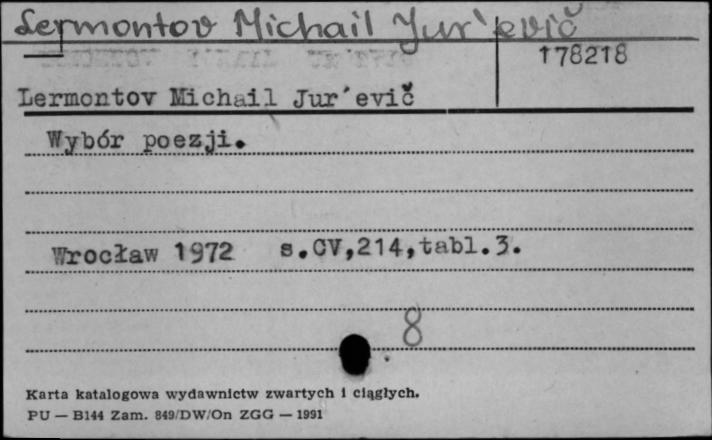 Lermontov Michail Jur'evič
178218
Lermontov Michail Jur'evič
Wybór poezji.
Wrocław 1972 s.CV,214,tabl.3.
8
Karta katalogowa wydawnictw zwartych i ciągłych.
PU — B144 Zam. 849/DW/On ZGG — 1991